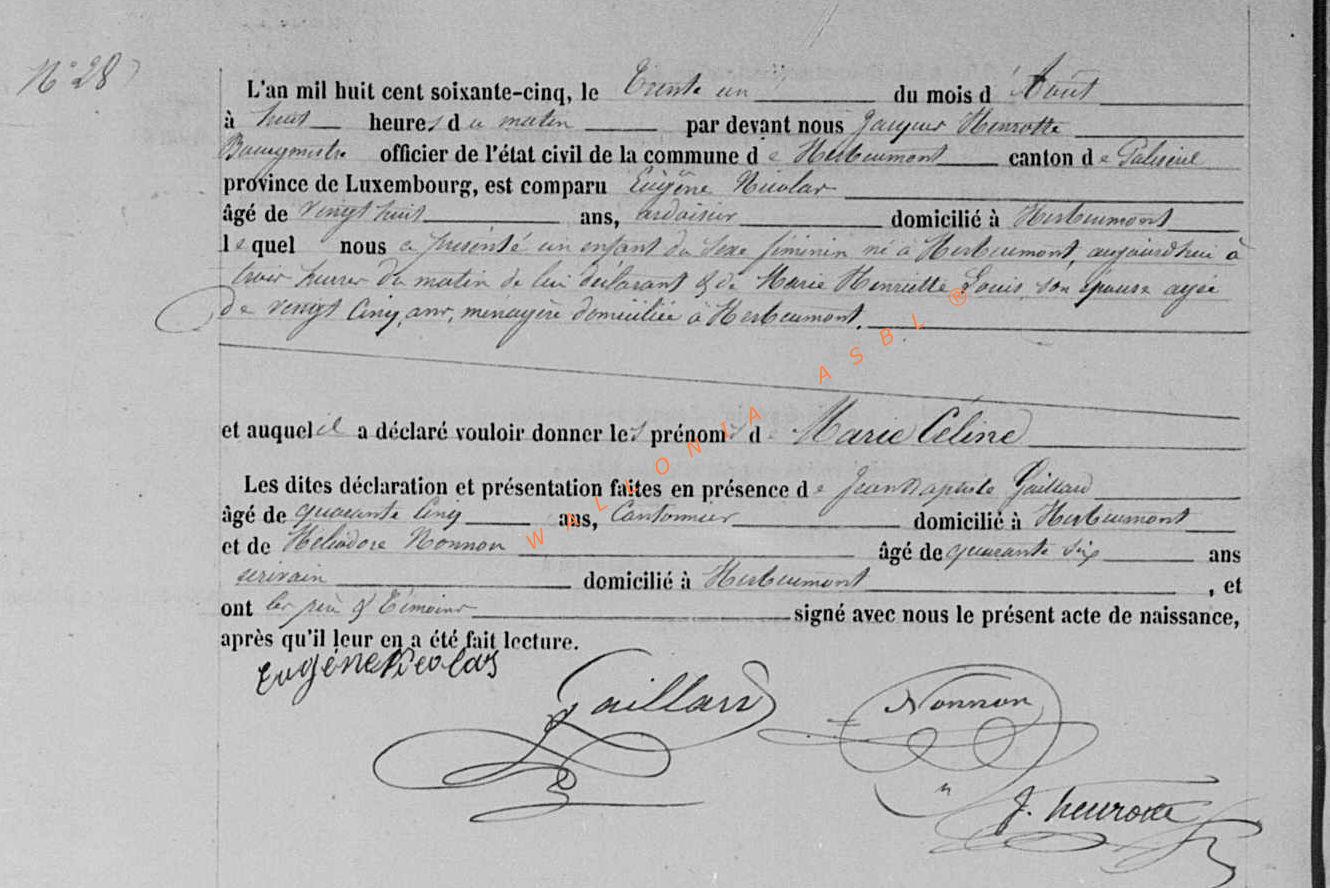 N° 28
L'an mil huit cent soixante-cinq, le Trente un du mois d'Août
à huit heures du matin par devant nous Jacques Henrotte
Bourgmestre officier de l'état civil de la commune de Herbeumont canton de Paliseul
province de Luxembourg, est comparu Eugène Nicolas
âgé de vingt huit ans, ardoisier domicilié à Herbeumont
lequel nous a présenté un enfant du sexe féminin né à Herbeumont, aujourd'hui à
trois heures du matin de lui déclarant & de Marie Henriette Louis, son épouse agée
de vingt cinq, ans, menagère domiciliée à Herbeumont.
et auquel il a déclaré vouloir donner les prénoms d Marie Céline
Les dites déclaration et présentation faites en présence de Jean Baptiste Gaillard
âgé de quarante cinq ans, Cantonnier domicilié à Herbeumont
et de Héliodore Nonnon âgé de quarante six ans
domicilié à Herbeumont, et
ont les père & témoins signé avec nous le présent acte de naissance,
après qu'il leur en a été fait lecture.
Eugène Nicolas
Gaillard
Nonnon
J. Henrotte
WALLONIA ASBL ®